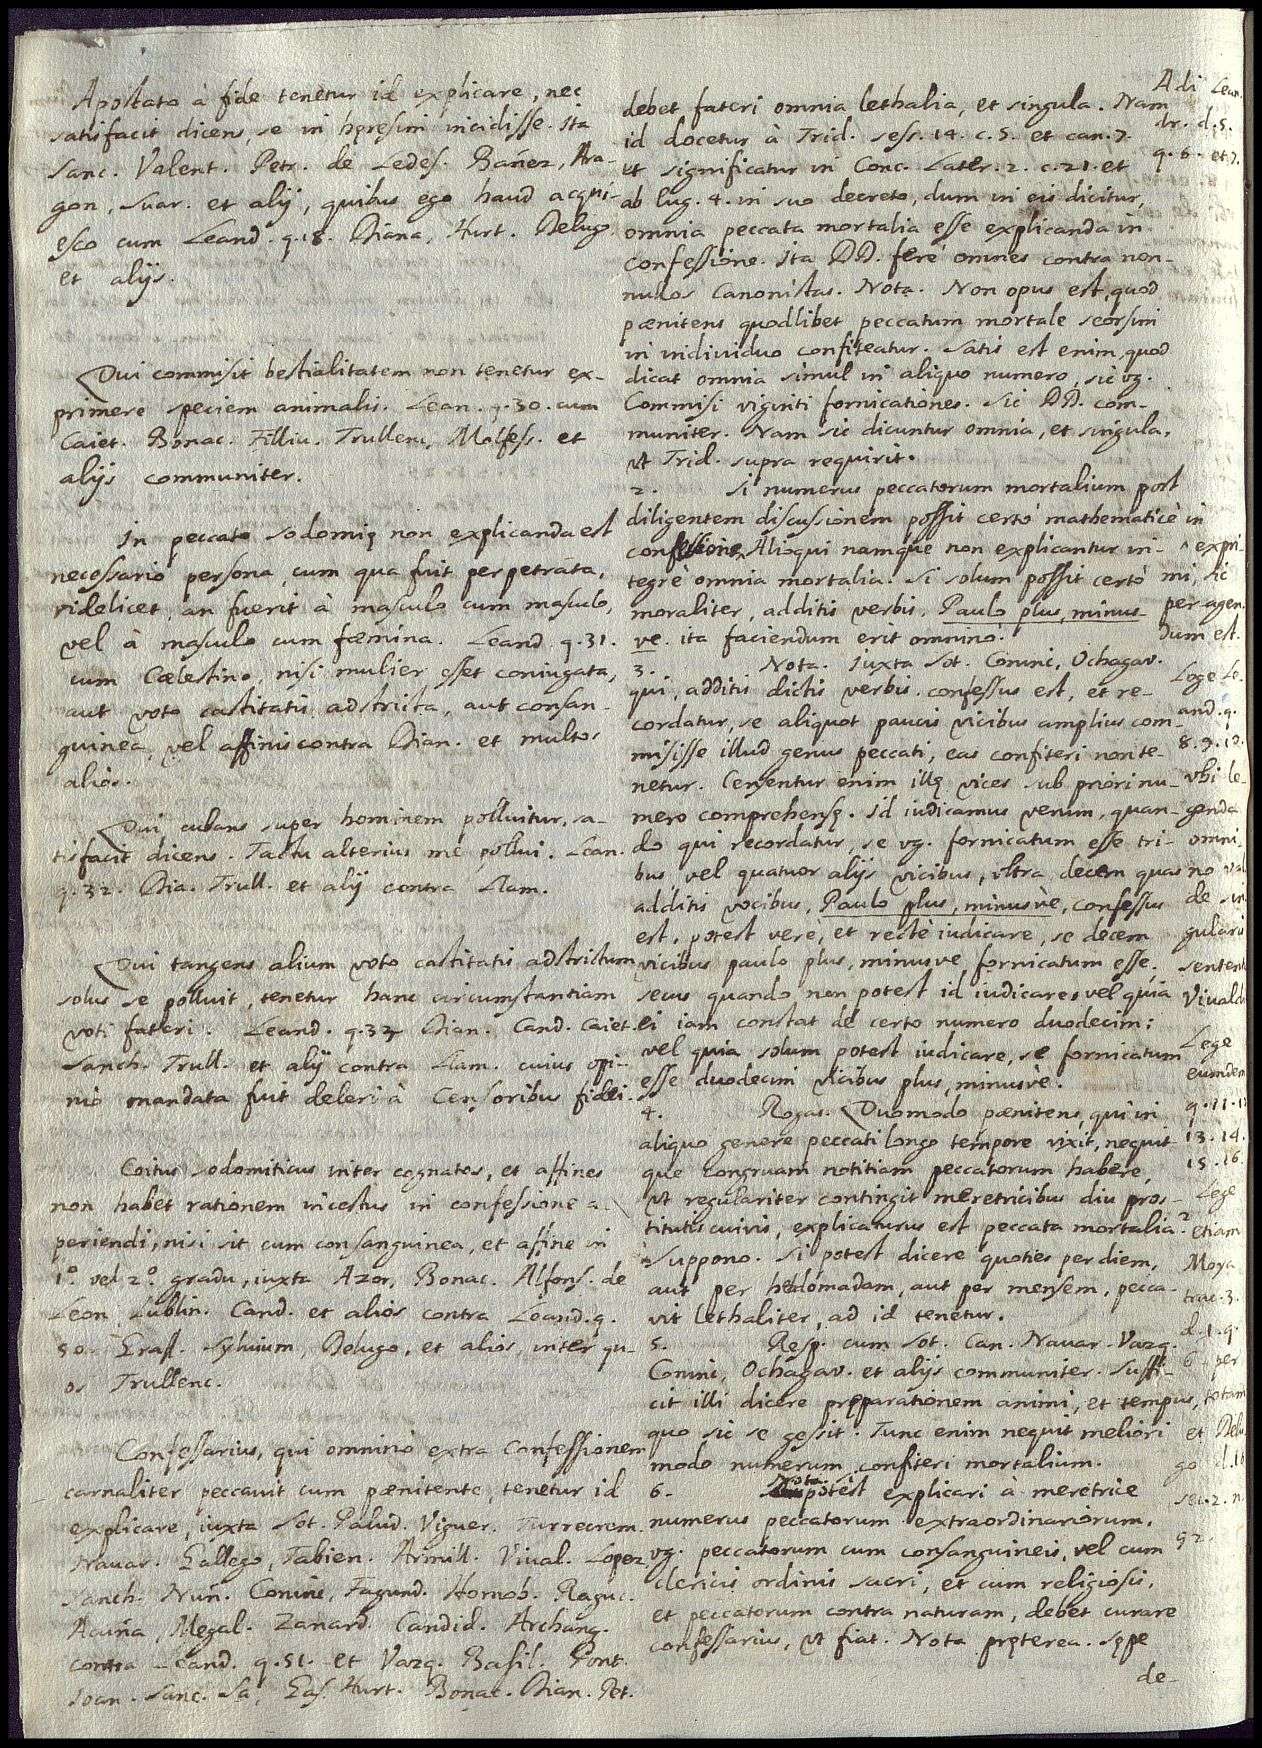 Apostata à fide tenetur id explicare, nec
satisfacit dicens, se in hęresim incidisse. Ita
Sanc. Valent. Petr. de Ledes. Bañez, Ara-
gon, Suar. et alij, quibus ego haud acqui-
esco cum Leand. q.18. Diana, Hurt. Delugo,
et alijs.
Qui commisit bestialitatem non tenetur ex-
primere speciem animalis. Lean. q.30. cum
Caiet. Bonac. Filliu. Trullenc, Molfess. et
alijs communiter.
In peccato sodomię non explicanda est
necessario persona, cum qua fuit perpetrata,
videlicet, an fuerit à masculo cum masculo,
vel à masculo cum fæmina. Leand. q.31.
cum Cælestino, nisi mulier esset coniugata,
aut voto castitatis adstricta, aut consan-
guinea, vel affinis contra Dian. et multos
alios.
Qui cubans super hominem polluitur, sa-
tisfacit dicens. Tactu alterius me pollui. Lean.
q.32. Dia. Trull. et alij contra Llam.
Qui tangens alium voto castitatis adstrictum
solus se polluit, tenetur hanc circumstantiam
voti fateri. Leand. q.33 Dian. Cand. Caiet.
Sanch. Trull. et alij contra Llam. cuius opi-
nio mandata fuit deleri à Censoribus fidei.
Coitus sodomiticus inter cognatos, et affines
non habet rationem incestus in confessione a-
periendi, nisi sit cum consanguinea, et affine in
1º. vel 2º. gradu, iuxta Azor, Bonac. Alfons. de
Leon, Lublin. Cand. et alios contra Leand. q.
50. Graff. Syluium, Delugo, et alios, inter qu-
os Trullenc.
Confessarius, qui omnino extra Confessionem
carnaliter peccauit cum pænitente, tenetur id
explicare, iuxta Sot. Palud. Viguer. Turrecrem.
Nauar. Gallego, Fabien. Armill. Viual. Lopez,
Sanch. Nuñ. Coninc, Fagund. Homob. Raguc.
Acuña, Megal. Zanard. Candid. Archang.
contra Leand. q.51. et Vazq. Basil. Pont.
Joan. Sanc. Sa, Gas. Hurt. Bonac. Dian. Pet.
debet fateri omnia lethalia, et singula. Nam
id docetur à Trid. sess. 14. c.5. et can.7.
et significatur in Conc. Later. 2. c.21. et
ab Eug. 4. in suo decreto, dum in eis dicitur,
omnia peccata mortalia esse explicanda in
confessione. Ita DD. ferè omnes contra non-
nullos Canonistas. Nota. Non opus est, quod
pænitens quodlibet peccatum mortale seorsim
in individuo confiteatur. Satis est enim, quod
dicat omnia simul in aliquo numero, sic vg.
Commisi viginti fornicationes. Sic DD. com-
muniter. Nam sic dicuntur omnia, et singula,
vt Trid. supra requirit.
2. Si numerus peccatorum mortalium post
diligentem discussionem possit certò mathematicè in
confessione Alioqui namque non explicantur in-
tegrè omnia mortalia. Si solum possit certò
moraliter, additis verbis, Paulo plus, minus
ve. ita faciendum erit omninò.
3. Nota. Iuxta Sot. Coninc, Ochagav.
qui, additis dictis verbis, confessus est, et re-
cordatur, se aliquot paucis vicibus amplius com-
misisse illud genus peccati, eas confiteri non te-
netur. Censentur enim illę vices sub priori nu-
mero comprehensę. Id iudicamus verum, quan-
do qui recordatur, se vg. fornicatum esse tri-
bus vel quatuor alijs vicibus, vltra decem quas
additis vocibus, Paulo plus, minusvè, confessus
est, potest verè, et rectè iudicare, se decem
vicibus paulo plus, minusve fornicatum esse.
secus quando non potest id iudicare, vel quia
ei iam constat de certo numero duodecim;
vel quia solum potest iudicare, se fornicatum
esse duodecim vicibus plus, minusvè.
4. Rogas. Quomodo pænitens, qui in
aliquo genere peccati longo tempore vixit, nequit
que congruam notitiam peccatorum habere,
vt regulariter contingit meretricibus diu pros-
titutis cuivis, explicaturus est peccata mortalia?
Suppono. Si potest dicere quoties per diem,
aut per hebdomadam, aut per mensem, pecca-
vit lethaliter, ad id tenetur.
5. Resp. cum Sot. Can. Nauar. Vazq.
Coninc, Ochagav. et alijs communiter. Suffi-
cit illi dicere pręparationem animi, et tempus,
quo sic se gessit. Tunc enim nequit meliori
modo numerum confiteri mortalium.
6. Nota. Si potest explicari à meretrice
numerus peccatorum extraordinariorum,
vg. peccatorum cum consanguineis, vel cum
clericis ordinis sacri, et cum religiosis,
et peccatorum contra naturam, debet curare
confessarius, vt fiat. Nota pręterea. Sępe
de
Adi Lean
dr. d.5.
q.6. et 7.
^ expri-
mi, sic
per agen
dum est.
Lege Le-
and. q.
8.9.10.
vbi le-
genda
omni
no
de sin
gulari
sentent
Viualdi
Lege
eumdem
q.11.12
13.14.
15.16.
Lege
etiam
Moya
trac.3.
d.1.q.
6. per
totam
et Delu
go d.16
sec.2. n.
92.